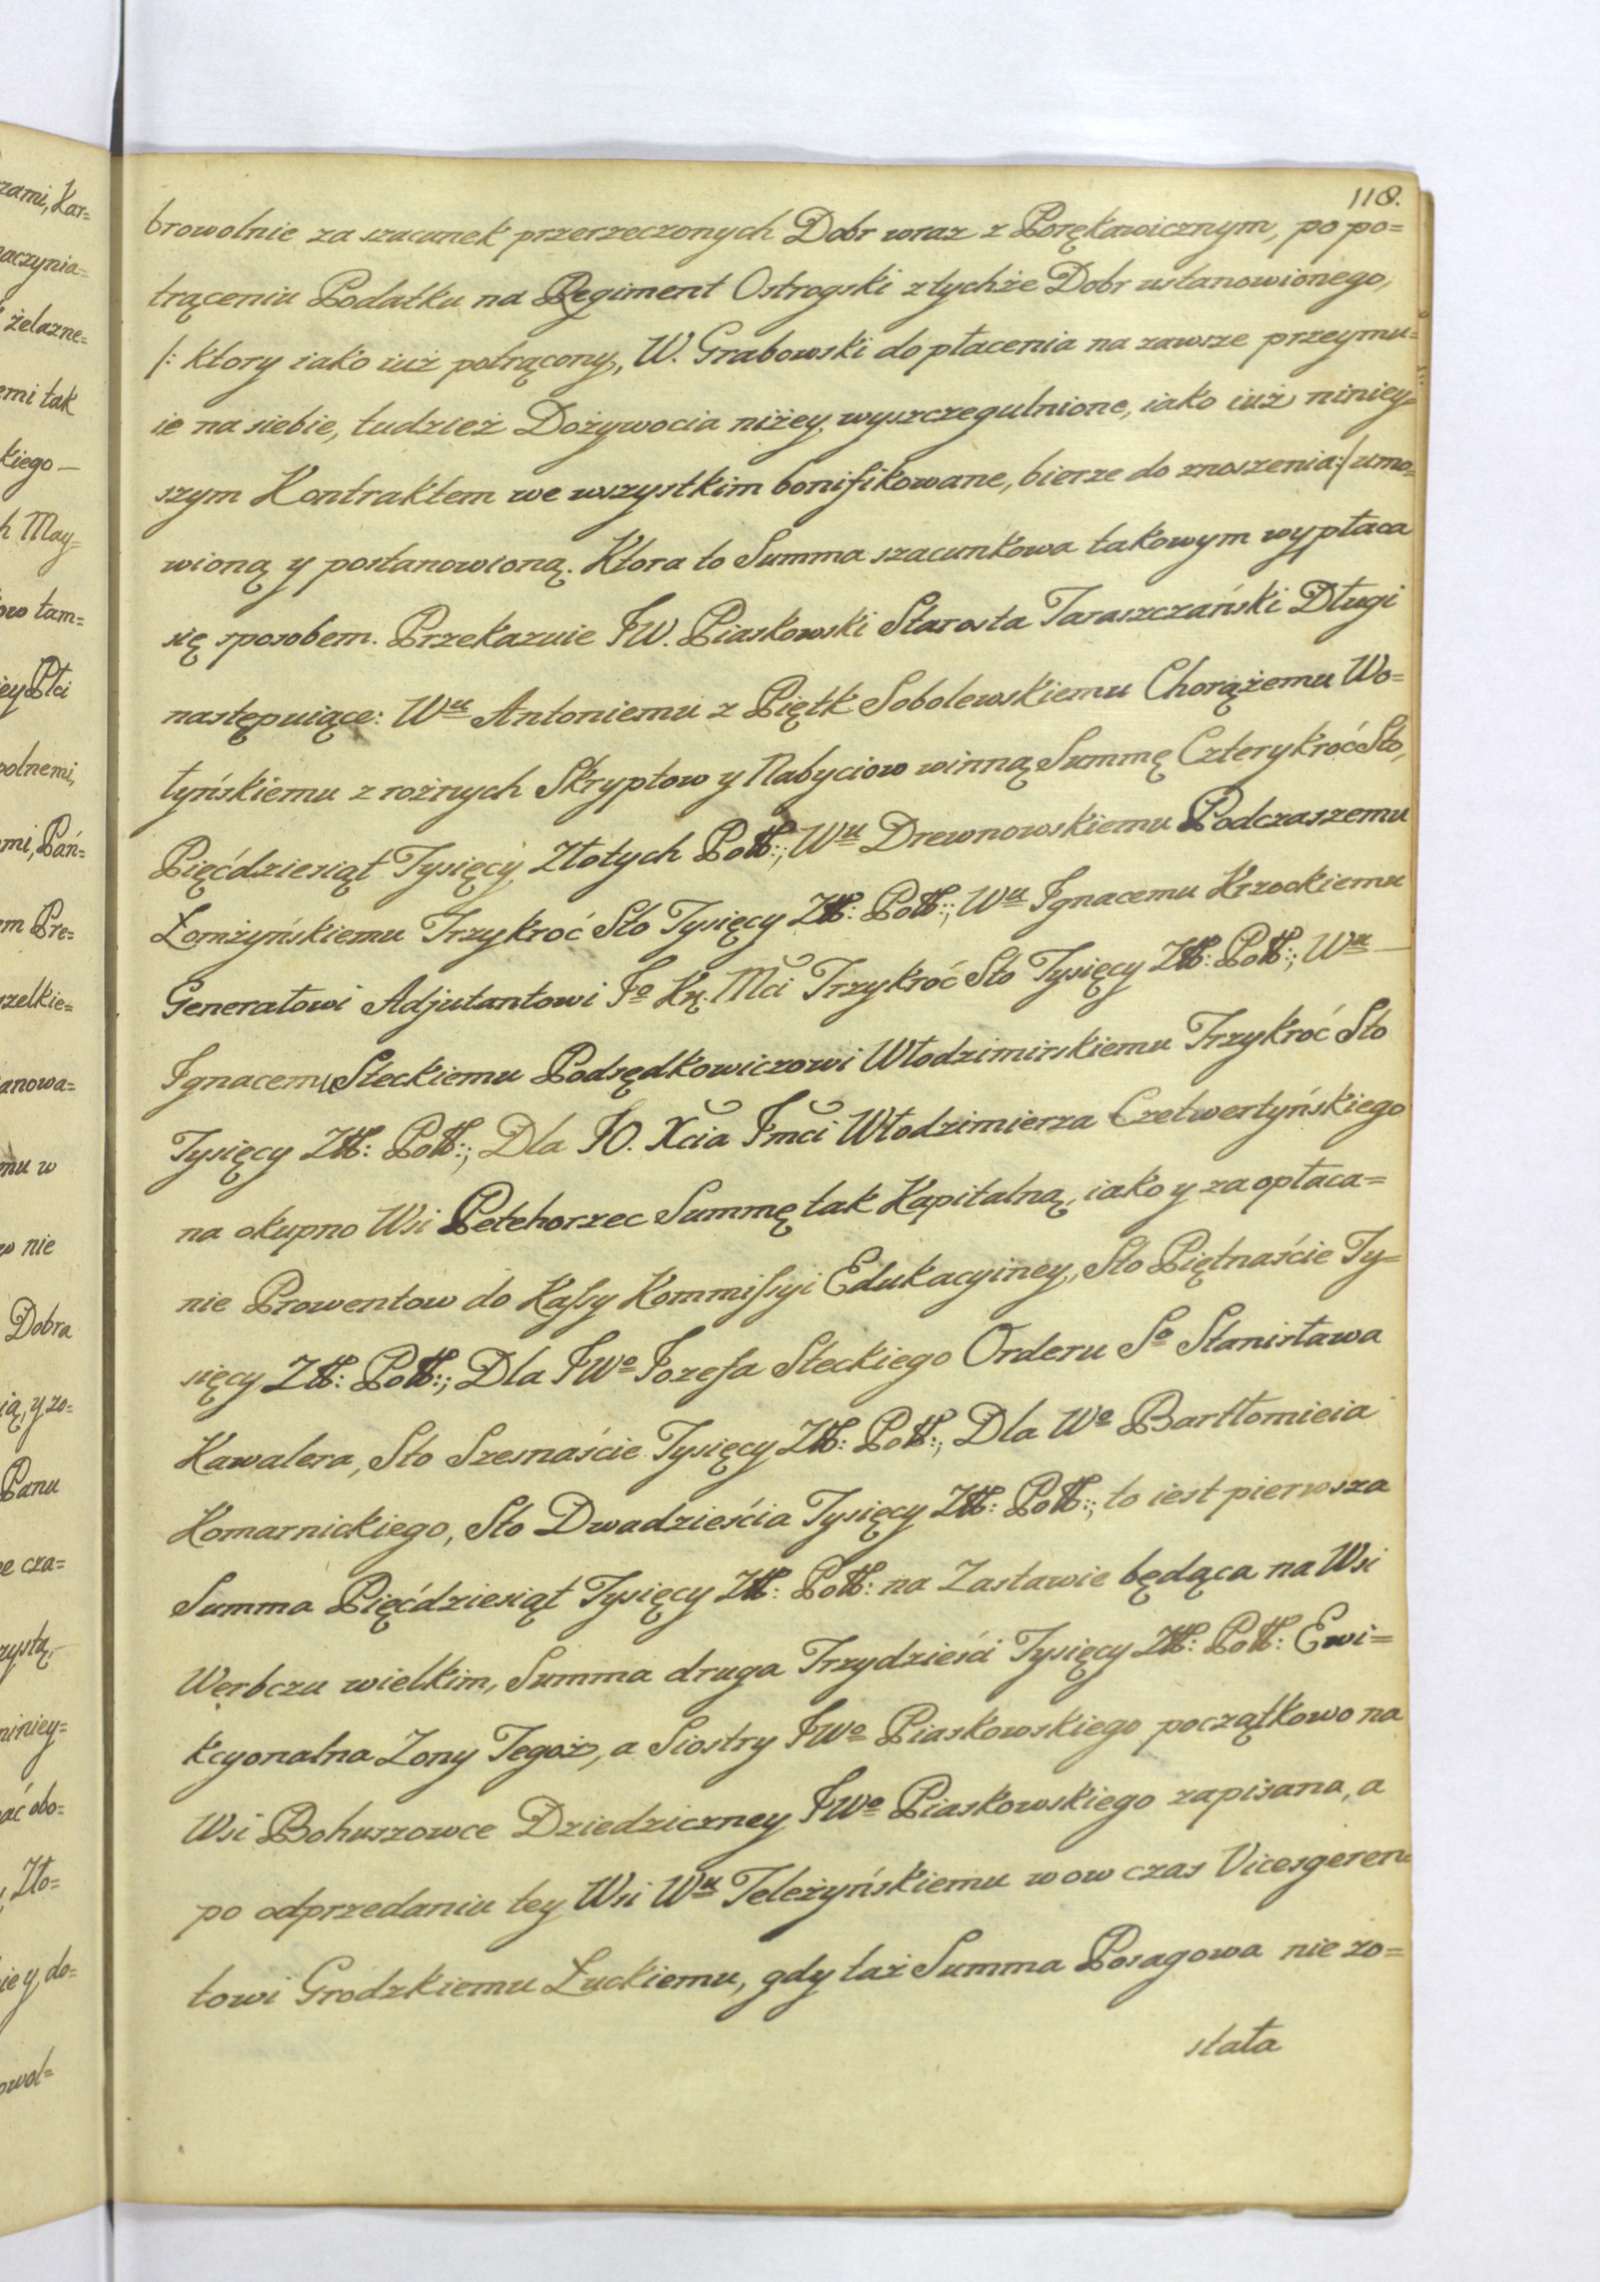 118.
browolnie za szacunek przerzeczonych Dobr wraz z Porękawicznym, po po=
trąceniu Podatku na Regiment Ostrogski z tychże Dobr ustanowionego,
/: ktory iako iuż potrącony, W. Grabowski do płacenia na zawsze przeymu=
ie na siebie, tudzież Dożywocia niżey wyszczegulnione, iako iuż niniey=
szym Kontraktem we wszystkim bonifikowane, bierze do znoszenia:/ umo=
wioną y postanowioną. Ktora to Summa szacunkowa takowym wypłaca
się sposobem. Przekazuie JW. Piaskowski Starosta Taraszczański Długi
następuiące: Wu Antoniemu z Piętk Sobolewskiemu Chorążemu Wo=
tyńskiemu z rożnych Skryptow y Nabyciow winną Summę Czterykroć Sto,
Pięćdziesiąt Tysięcy Złotych Poll:; Wu Drewnowskiemu Podczaszemu
Łomżyńskiemu Trzykroć Sto Tysięcy Zll: Poll:; Wu Ignacemu Krzockiemu
Generałowi Adjutantowi Jo Kr. Mci Trzykroć Sto Tysięcy Zll: Poll:; Wu —
Ignacemu Steckiemu Podsędkowiczowi Włodzimirskiemu Trzykroć Sto
Tysięcy Zll: Poll:; Dla JO. Xcia Jmci Włodzimierza Czetwertyńskiego
na okupno Wsi Petehorzec Summę tak Kapitalną, iako y za opłaca=
nie Prowentow do Kassy Kommissyi Edukacyiney, Sto Piętnaście Ty=
sięcy Zll: Poll:; Dla JWo Jozefa Steckiego Orderu So Stanisława
Kawalera, Sto Szesnaście Tysięcy Zll: Poll:; Dla Wo Bartłomieia
Komarnickiego, Sto Dwadzieścia Tysięcy Zll: Poll:; to iest pierwsza
Summa Pięćdziesiąt Tysięcy Zll: Poll: na Zastawie będąca na Wsi
Werbczu wielkim, Summa druga Trzydzieści Tysięcy Zll: Poll: Ewi=
kcyonalna Zony Tegoż, a Siostry JWo Piaskowskiego początkowo na
Wsi Bohuszowce Dziedziczney JWo Piaskowskiego zapisana, a
po odprzedaniu tey Wsi Wu Teleżyńskiemu wow czas Vicesgeren=
towi Grodzkiemu Łuckiemu, gdy taż Summa Posagowa nie zo=
stała